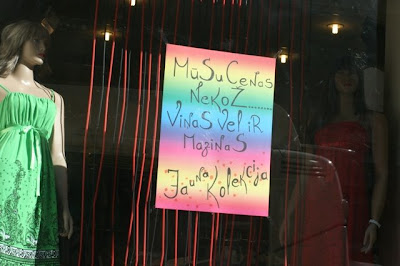 MūSu Cenas
Nekož........
Viņas Vēl iR
Maziņas
Jauna Kolekcija